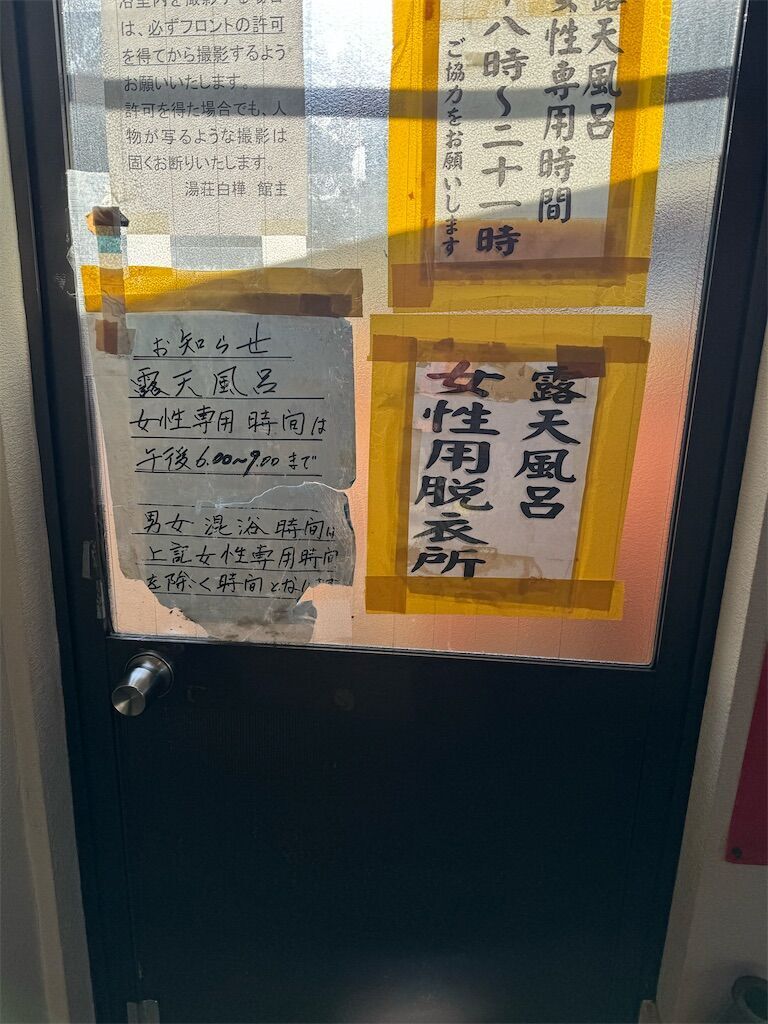 は、必ずフロントの許可
を得てから撮影するよう
お願いいたします。
許可を得た場合でも、人
物が写るような撮影は
固くお断りいたします。
湯荘白樺 館主
露天風呂
女性専用時間
八時〜二十一時
ご協力をお願いします
お知らせ
露天風呂
女性専用時間は
午後6.00~9.00まで
男女混浴時間は
上記女性専用時間
を除く時間と
露天風呂
女性用脱衣所